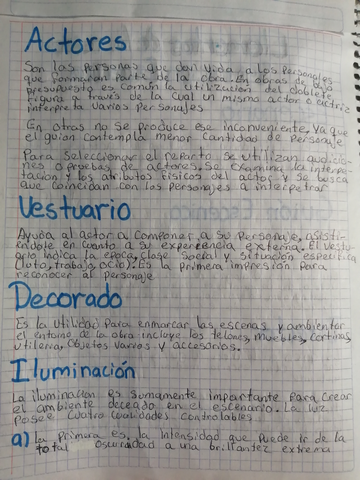 Actores
Son las Personas que dan vida a los Personajes
que formaran Parte de la obra. En obras de bajo
presupuesto es común la utilización del doblete
figura a través de la cual un mismo actor o actriz
interpreta varios personajes
En otras no se produce ese inconveniente, ya que
el guion contempla menor cantidad de Personaje
Para seleccionar el reparto se utilizan audicio-
nes o pruebas de actores. Se examina la interpre-
tación y los atributos fisicos del actor y se busca
que coincidan con los personajes a interpretar
Vestuario
Ayuda al actor a componer a su Personaje, asisti-
endole en cuanto a su experiencia externa. El vestu-
ario indica la epoca, clase social y situación especifica
(luto, trabajo, ocio). Es la primera impresión Para
reconocer al personaje
Decorado
Es la utilidad Para enmarcar las escenas y ambientar
el entorno de la obra incluye los telones, muebles, cortinas,
utileria, objetos varios y accesorios.
Iluminación
La iluminación es sumamente importante para crear
el ambiente deceado en el escenario. La luz
posee cuatro cualidades controlables
a) la Primera es la intensidad que puede ir de la
total oscuridad a una brillantez extrema